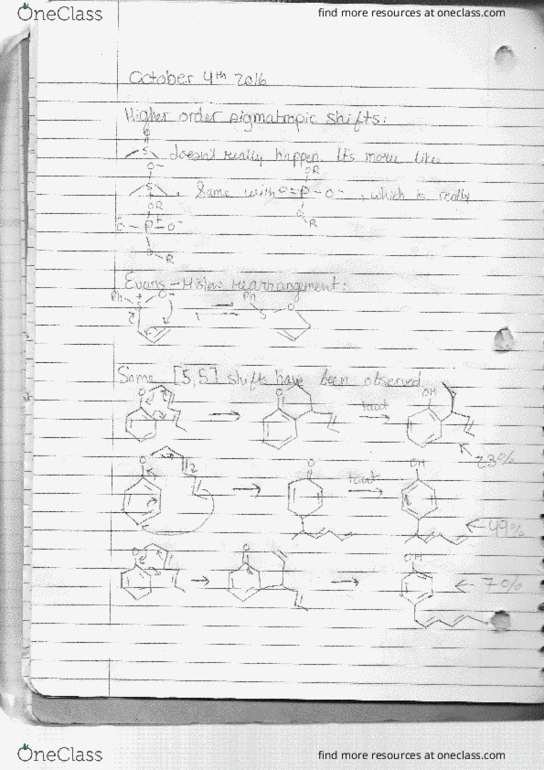 OneClass
find more resources at oneclass.com
October 4th 2016
Higher order sigmatropic shifts:
O
S doesn't really happen. It's more like
O-
OR
S . Same with O=P-O- , which is really
OR
OR
-O-P+-O-
O-R
Evans-Mislow rearrangement:
Ph S+ O-
Ph S O
Some [5,5] shifts have been observed
O
O
taut
OH
23%
O
2
O
taut
OH
49%
O
O
OH
7%
OneClass
find more resources at oneclass.com